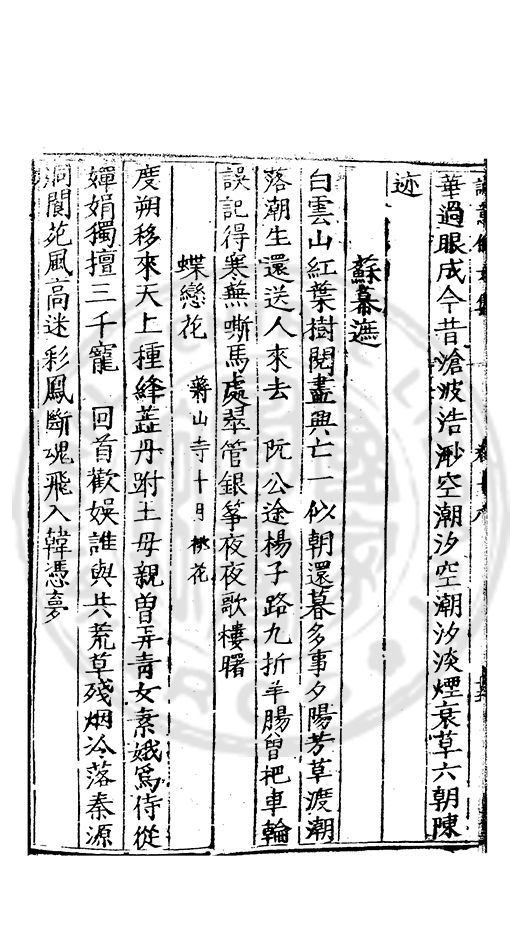 華過眼成今昔滄波浩渺空潮汐空潮汐淡煙衰草六朝陳
迹
蘇幕遮
白雲山紅葉樹閱盡興亡一似朝還暮多事夕陽芳草渡潮
落潮生還送人來去　阮公途楊子路九折羊腸曾把車輪
誤記得寒蕪嘶馬處翠管銀箏夜夜歌樓曙
蝶戀花　藥山寺十月桃花
度朔移來天上種絳蕋丹跗王母親曾弄青女素娥爲侍從
嬋娟獨擅三千寵　回首歡娛誰與共荒草殘烟冷落秦源
洞閬苑風高迷彩鳳斷魂飛入韓憑夢